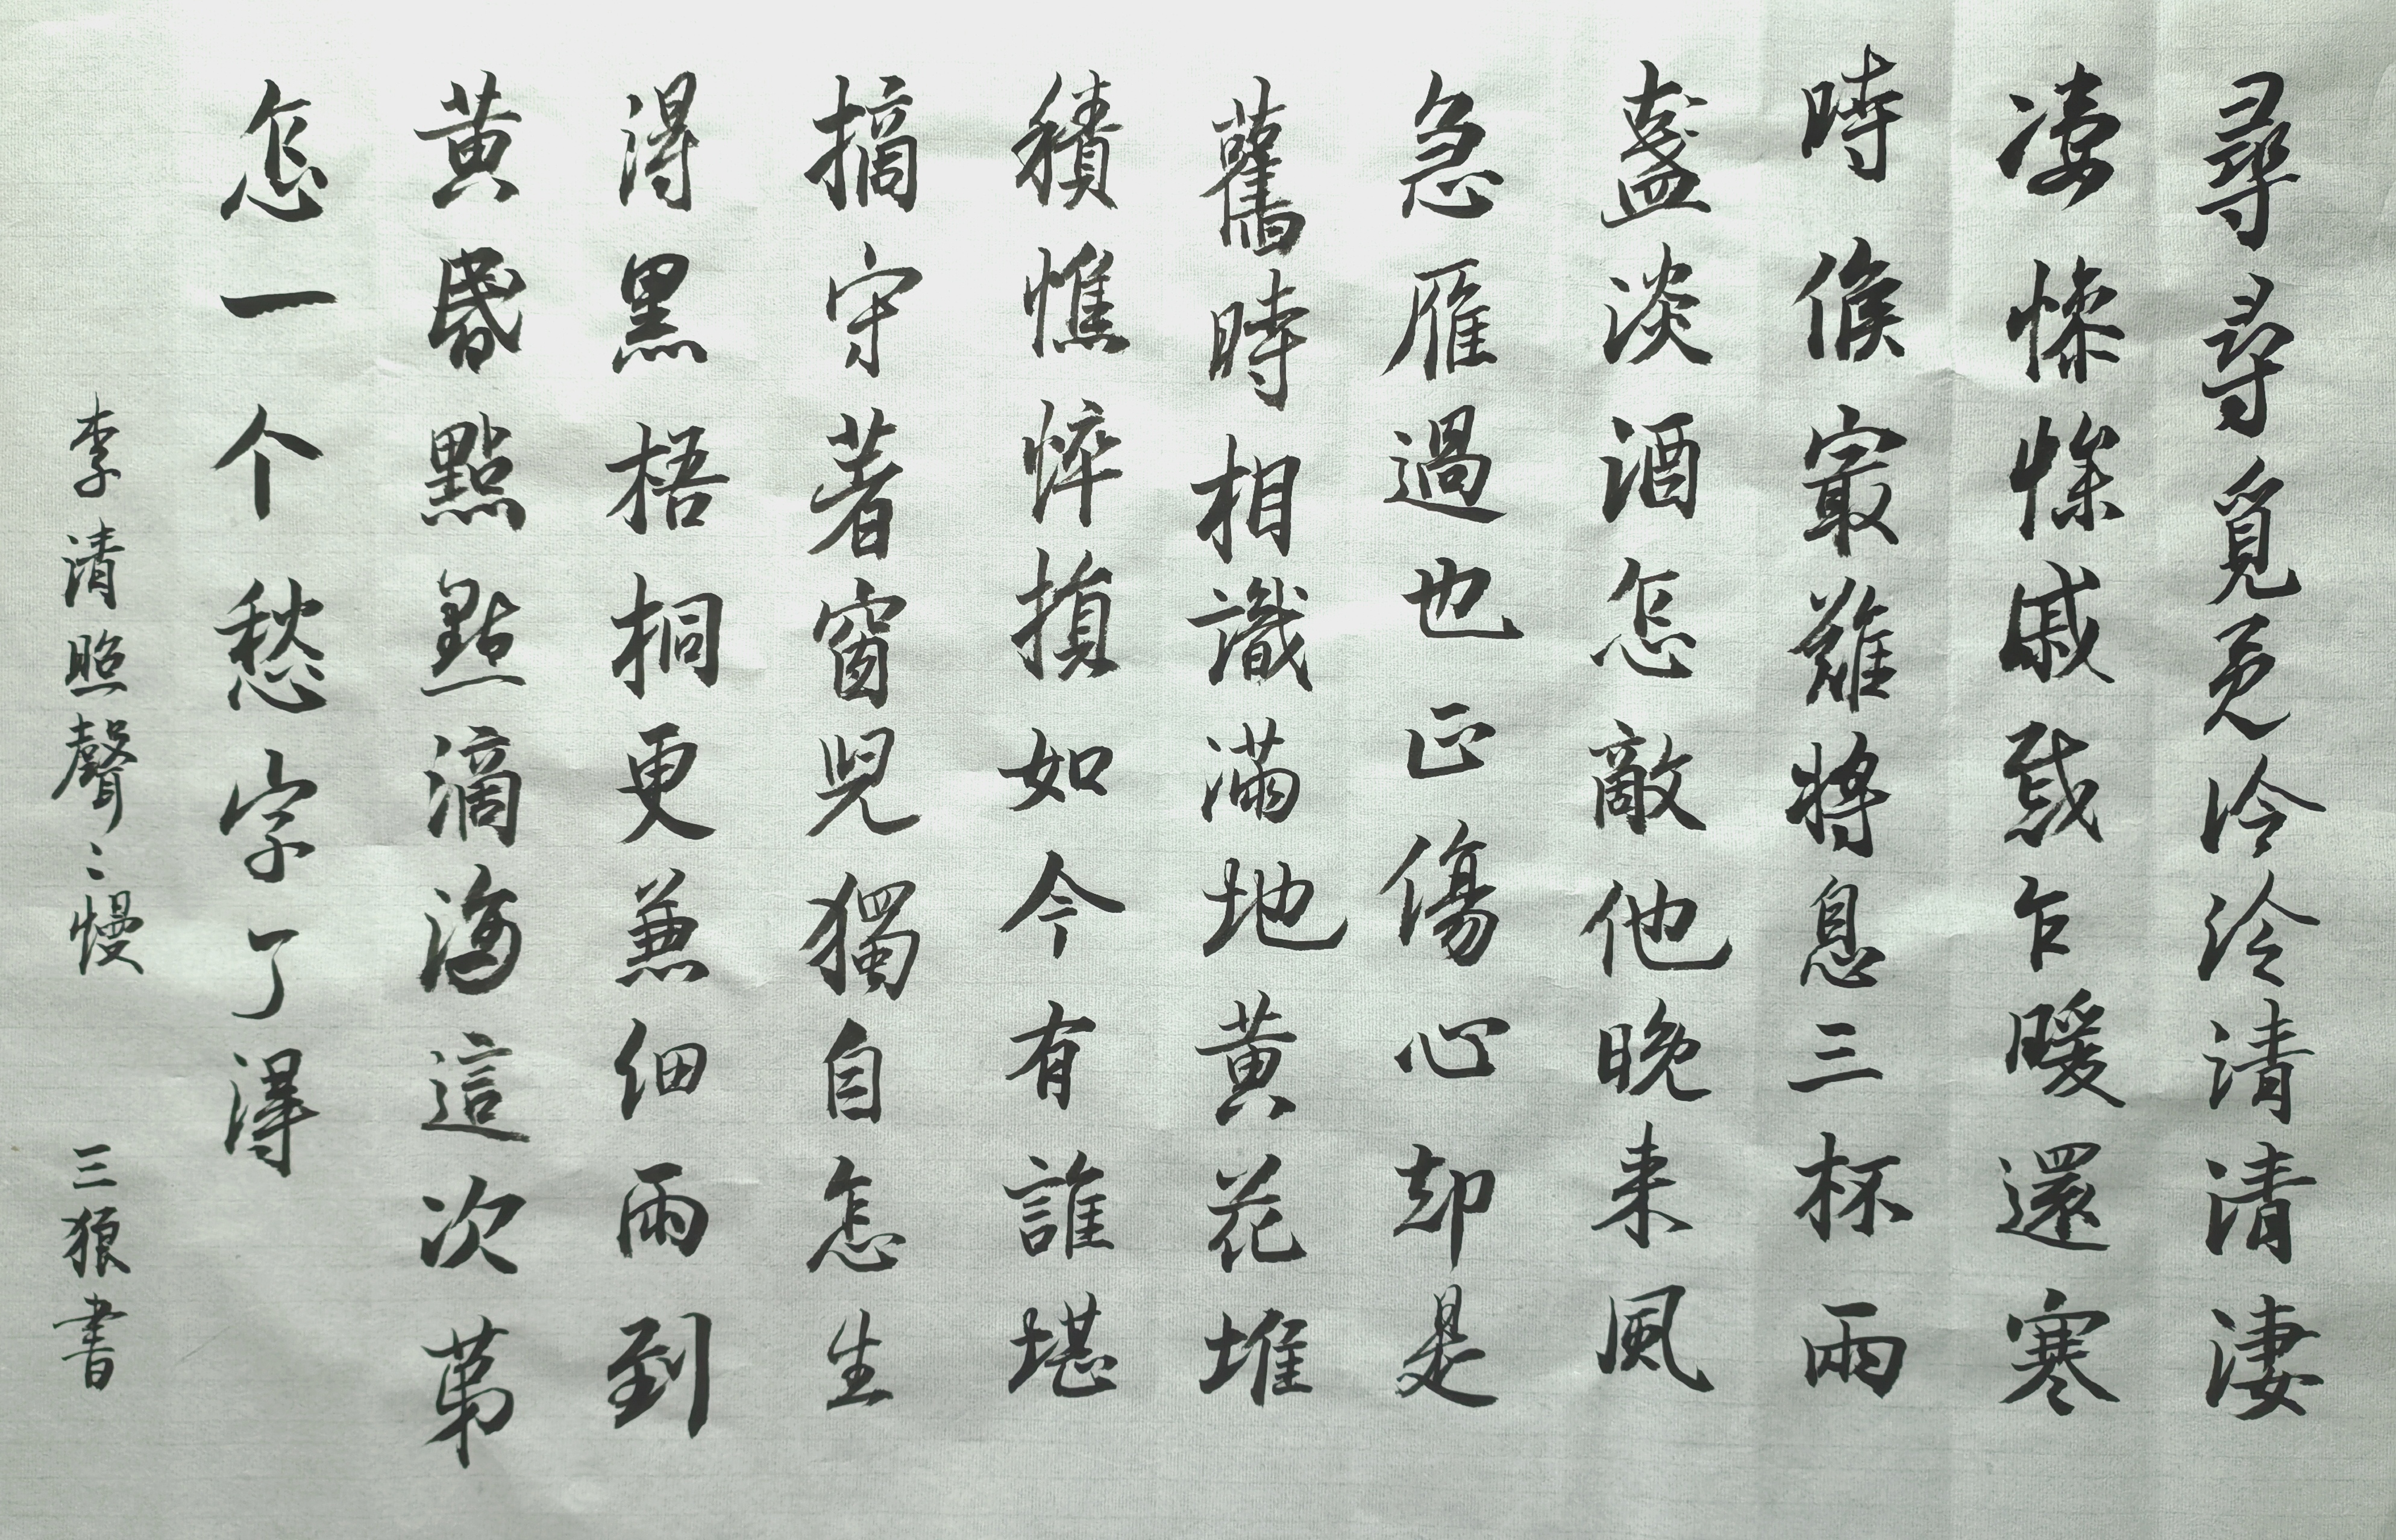 尋尋覓覓冷冷清清淒
淒慘慘戚戚乍暖還寒
時候最難將息三杯兩
盞淡酒怎敵他晚来風
急雁過也正傷心却是
舊時相識滿地黃花堆
積憔悴損如今有誰堪
摘守著窗児獨自怎生
得黑梧桐更兼細雨到
黃昏點點滴滴這次第
怎一个愁字了得
李清照聲〻慢 三狼書